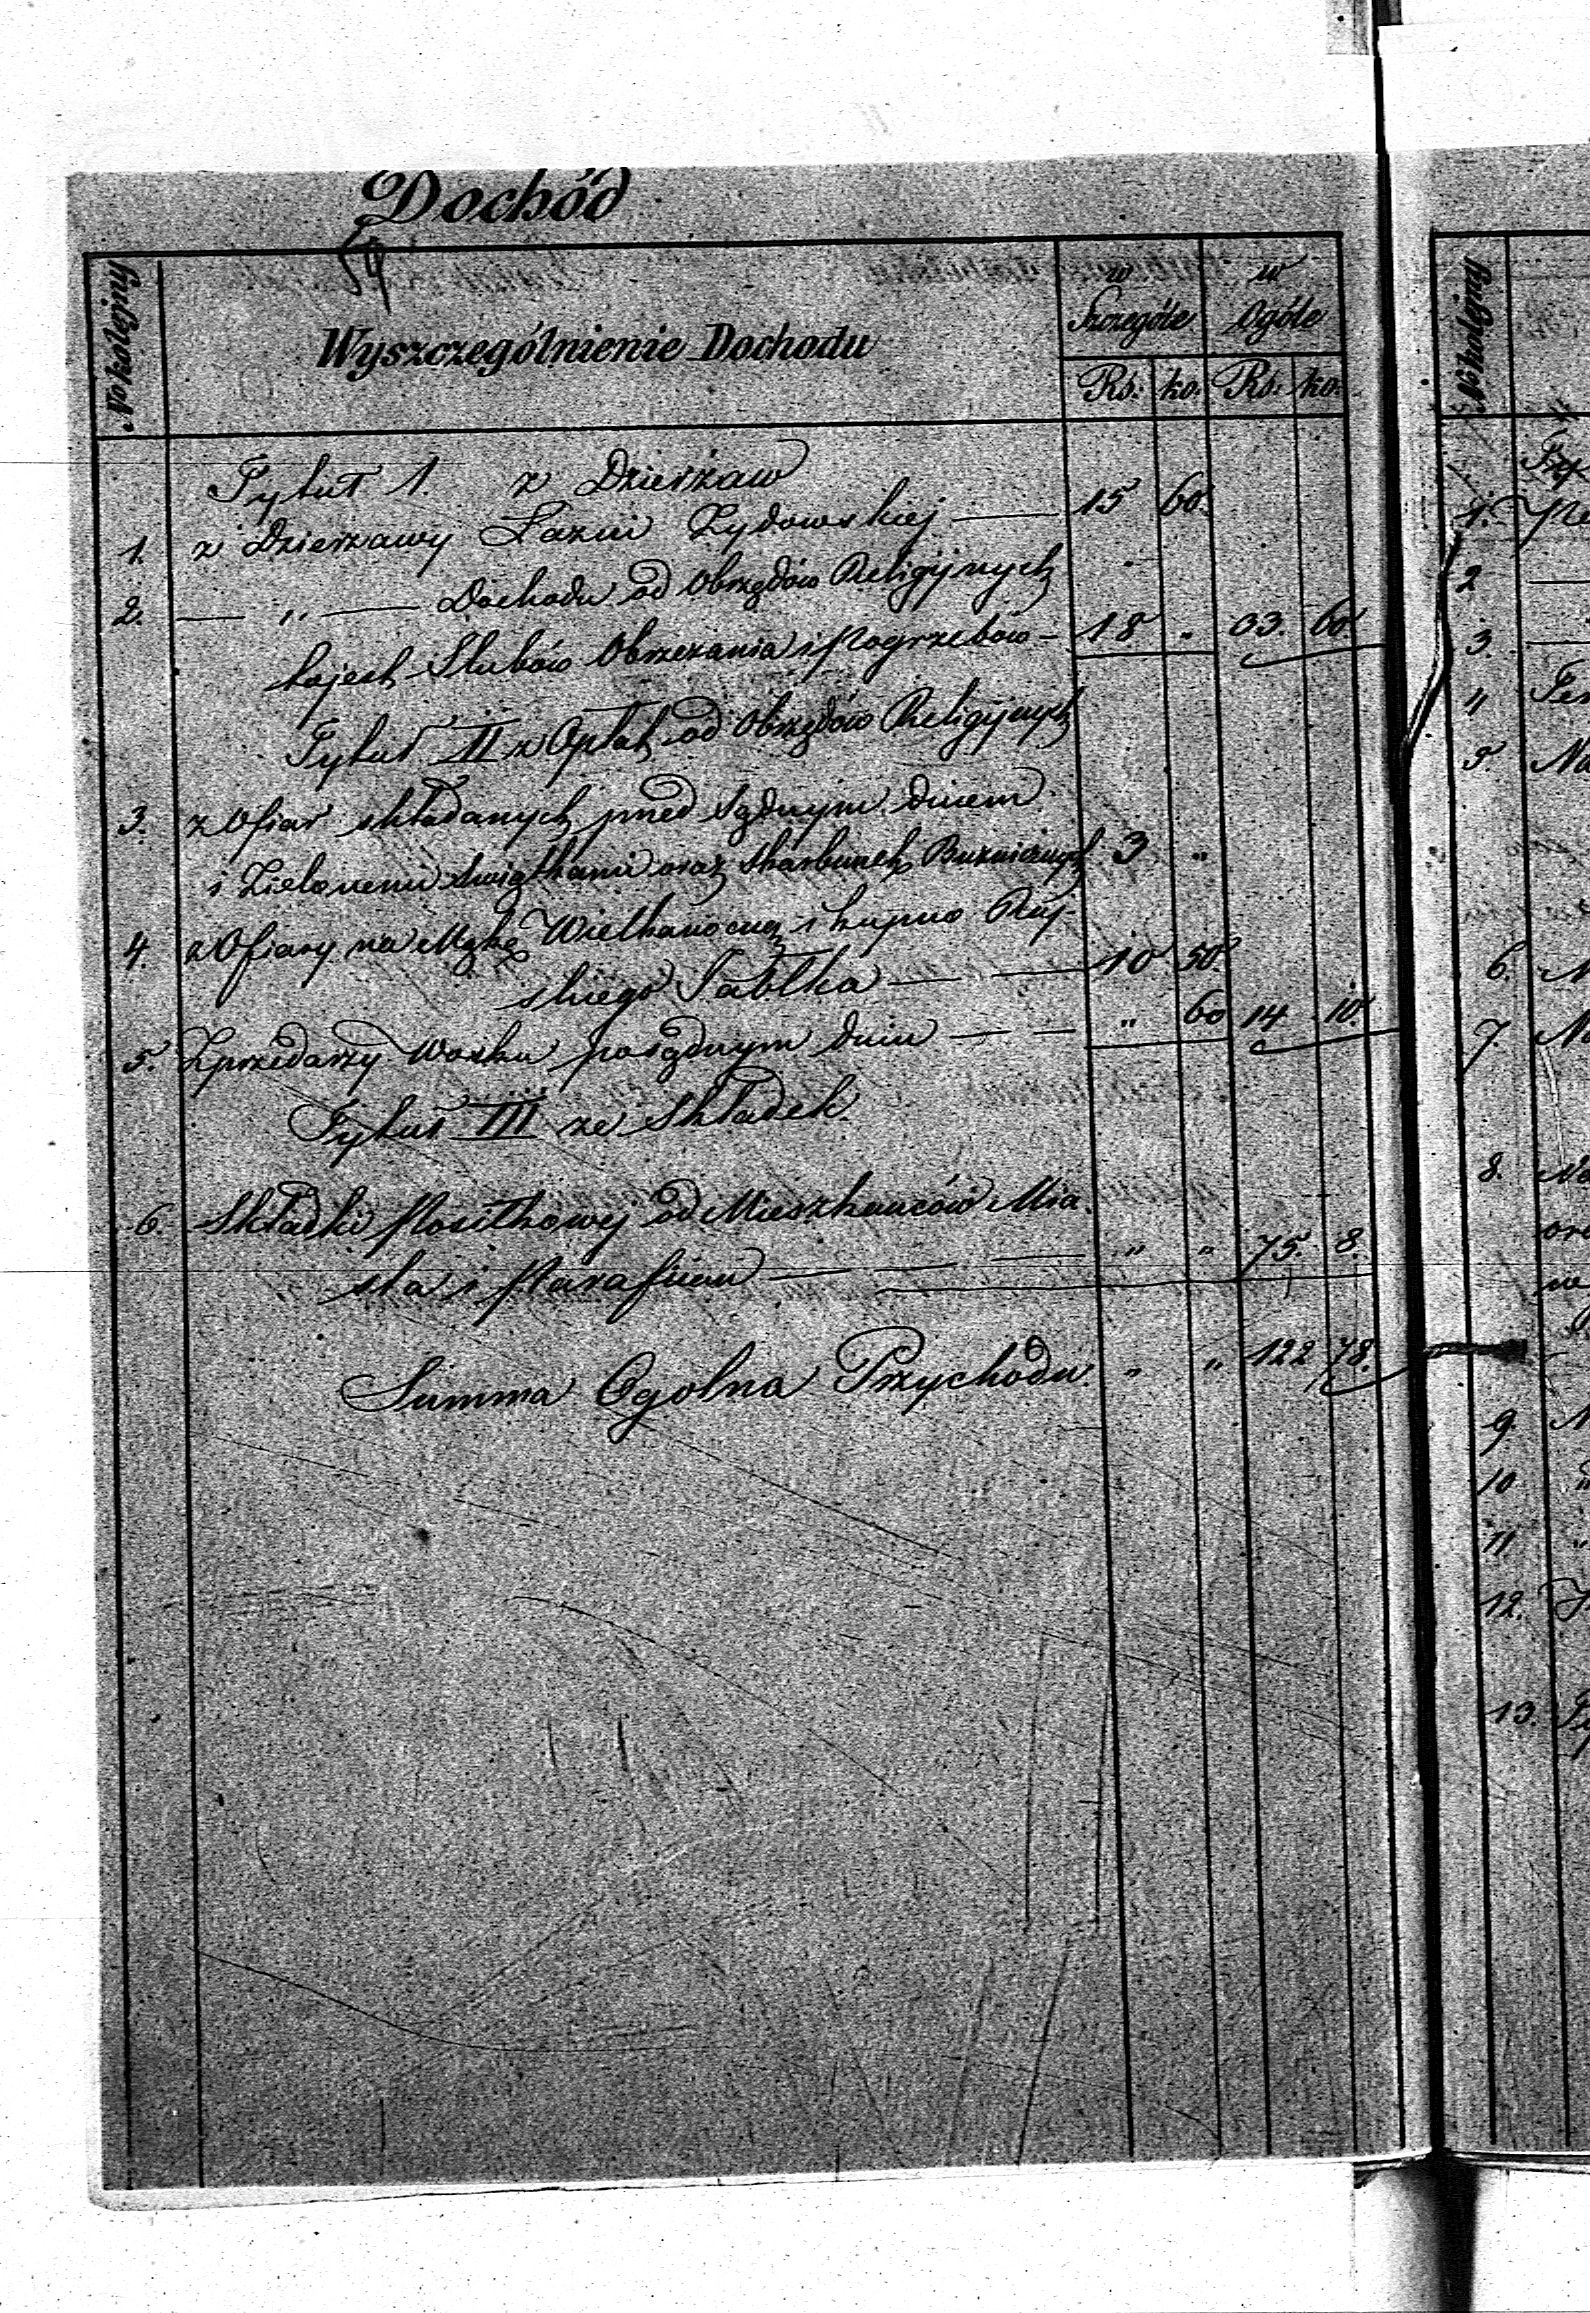 Dochód
No kolejny
Wyszczególnienie Dochodu
w Szczególe
w Ogóle
Rs. ko. Rs. ko.
Tytuł 1. z Dzierżaw
1. z Dzierżawy Łazni Zydowskiej — 15 60.
2. — „ — Dochodu od Obrzędów Religijnych
tojest Slubów Obrzezania i Pogrzebów — 18 „ 33. 60.
Tytuł II z Opłat od Obrzędów Religijnych
3. z Ofiar składanych przed Sądnym dniem
i Zielonemi Swiątkami oraz skarbonek Bużnicznych 3 „
4. z Ofiary na Mąkę Wielkanocną i kupno Raj-
skiego Jabłka — — 10 50.
5. Zprzedarzy Wosku po sądnym dniu — — „ 60 14 10.
Tytuł III ze Składek
6. Składki Positkowej od Mieszkanców Mia-
sta i Parafian — — — „ „ 75. 8.
Summa Ogolna Przychodu „ „ 122 78.
No kolejny
1.
2
3.
4
5. Na
6. N
7. Na
8. Na
9. N
10 „
11 „
12.
13.